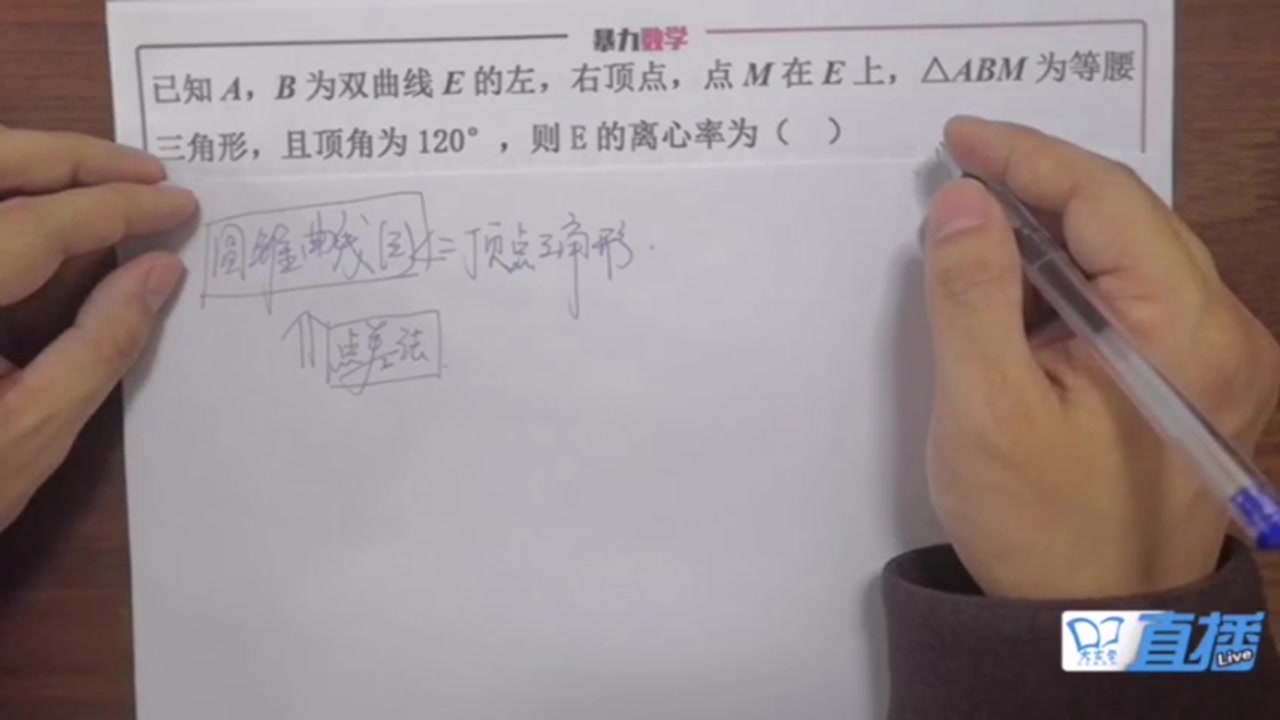 暴力数学
已知 A，B 为双曲线 E 的左，右顶点，点 M 在 E 上，△ABM 为等腰
三角形，且顶角为 120°，则 E 的离心率为（ ）
圆锥曲线(三) <= 顶点三角形.
点差法
直播
Live